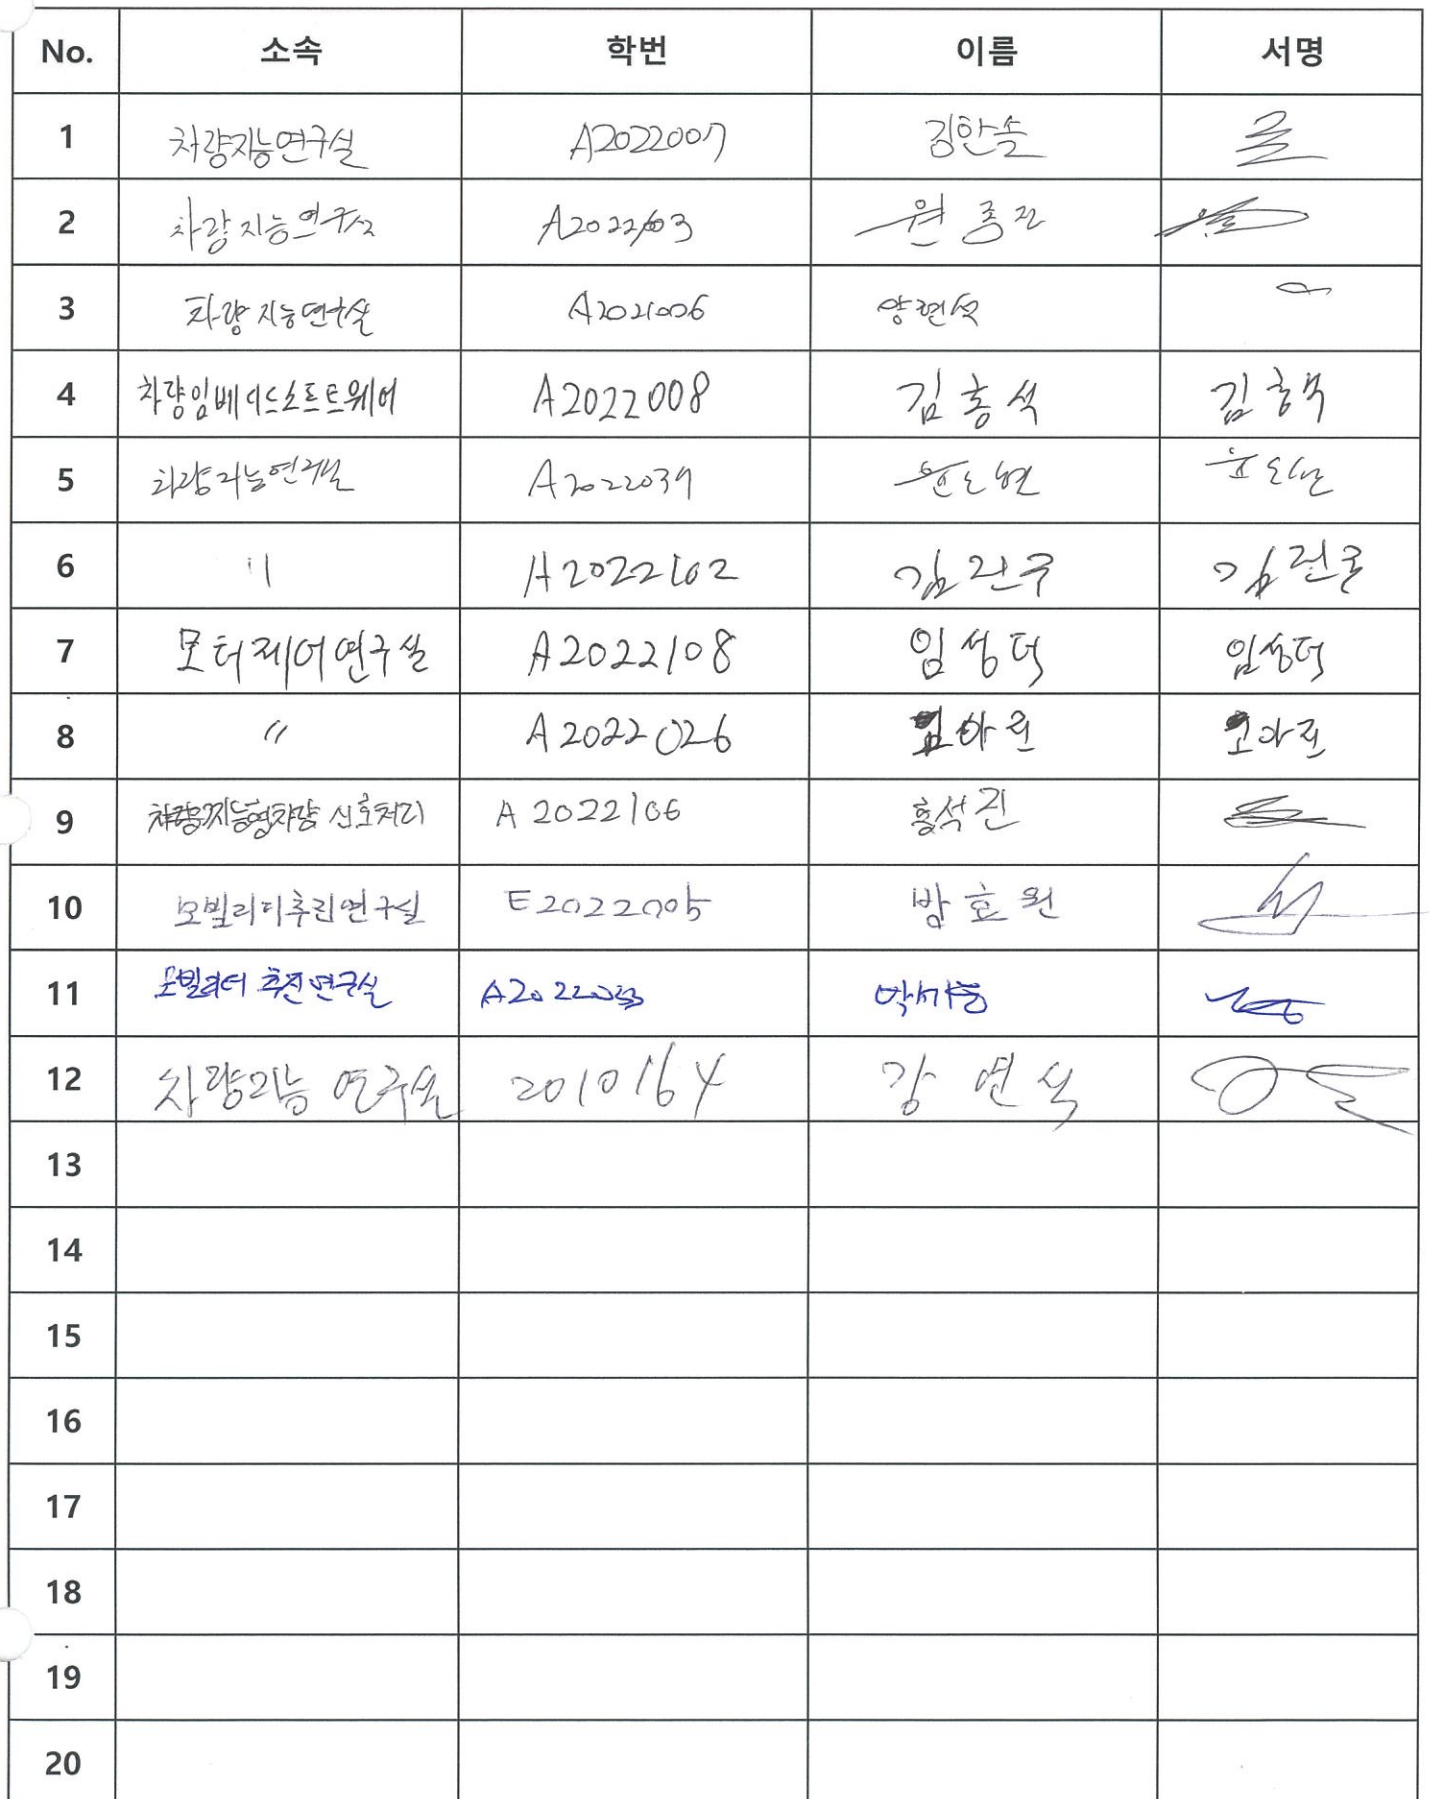 No. 소속 학번 이름 서명
1 차량지능연구실 A2022007 김한솔
2 차량지능연구실 A2022103 원종진
3 차량지능연구실 A2021006 양현석
4 차량임베디드소프트웨어 A2022008 김홍석 김홍석
5 차량지능연구실 A2022039 윤도현 윤도현
6 " A2022102 김진우
7 모터제어연구실 A2022108 임성덕 임성덕
8 " A2022026
9 차량 신호처리 A2022106 홍석진
10 모빌리티추진연구실 E2022005 방효원
11 모빌리티 추진연구실 A2022033
12 차량지능 연구실 2010164 강연석
13
14
15
16
17
18
19
20